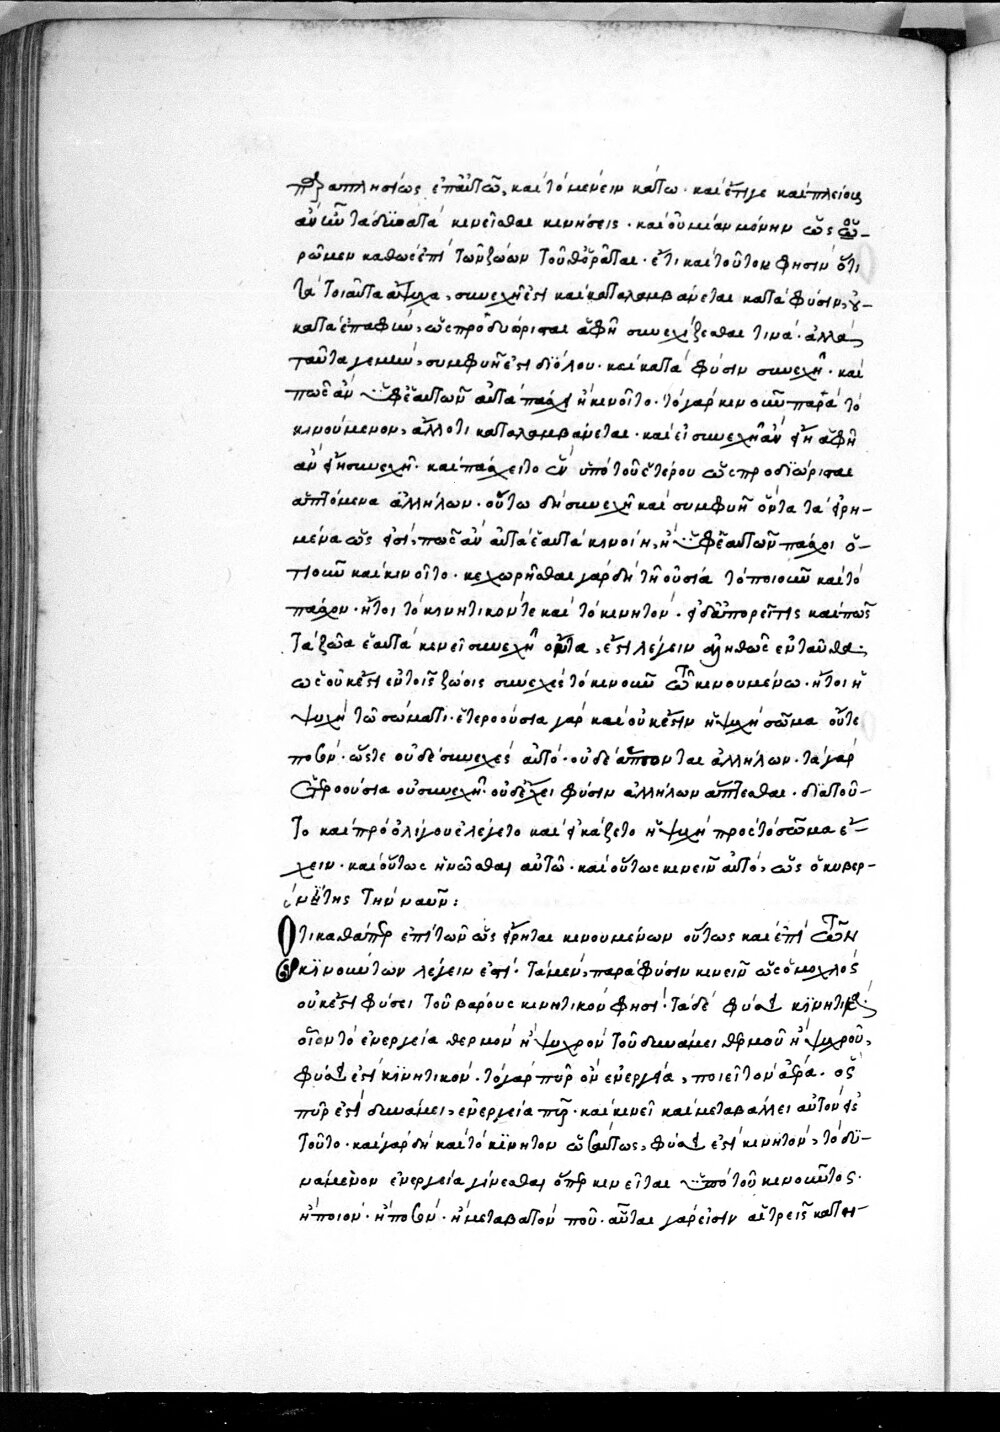 παραπλησίως ἐπ' αὐτῶ, καὶ τὸ μένειν κάτω· καὶ ἔτι γε καὶ πλείους
ἂν ὧν τὰ δύνατα κινεῖσθαι κινήσεις· καὶ οὐ μίαν μόνην ὡς
ρῶμεν καθὼς ἐπὶ τῶν ζώων τοῦθ' ὁρᾶται· ἔτι καὶ τοῦτον φησὶν ὅτι
τὰ τοιαῦτα ἄψυχα, συνεχῆ ἐστι καὶ καταλαμβάνεται κατὰ φύσιν, οὐ
κατὰ ἐπαφὴν, ὥσπερ διώρισται ἀφῇ συνεχίζεσθαι τινά· ἀλλὰ
ταῦτα μὲν, συμφυῆ ἐστι διόλου· καὶ κατὰ φύσιν συνεχῆ· καὶ
πῶς ἂν ὑφ' ἑαυτῶν αὐτὰ πάσχοι ἢ κινοῖτο· τὸ γὰρ κινοῦν παρὰ τὸ
κινούμενον, ἄλλό τι καταλαμβάνεται· καὶ εἰ συνεχῆ ἂν εἴη ἀφῇ
ἂν εἴη συνεχῆ· καὶ πάσχει τὸ ἓν ὑπὸ τοῦ ἑτέρου ὡς προδιώρισται
ἁπτόμενα ἀλλήλων· οὕτω δὴ συνεχῆ καὶ συμφυῆ ὄντα τὰ εἰρη-
μένα ὥς ἐστι, πῶς ἂν αὐτὰ ἑαυτὰ κινοίη, ἢ ὑφ' ἑαυτῶν πάσχοι ὅ-
ποιοῦν καὶ κινοῖτο· κεχωρῆσθαι γὰρ δὴ τῇ οὐσία τὸ ποιοῦν καὶ τὸ
πάσχον· ἤτοι τὸ κινητικόν τε καὶ τὸ κινητόν· εἰ δ' ἀπορεῖ τις καὶ πῶς
τὰ ζῶα ἑαυτὰ κινεῖ συνεχῆ ὄντα, ἔστι λέγειν ἀληθῶς ἐνταῦθα·
ὡς οὐκ ἔστι ἐν τοῖς ζώοις συνεχὲς τὸ κινοῦν τῶ κινουμένω· ἤτοι ἡ
ψυχὴ τῶ σώματι· ἑτεροούσια γὰρ καὶ οὐκ ἔστιν ἡ ψυχὴ σῶμα οὔτε
ποσόν· ὥστε οὐδὲ συνεχὲς αὐτό· οὐδὲ ἅπτονται ἀλλήλων· τὰ γὰρ
ἑτεροούσια οὐ συνεχῆ· οὐδ' ἔχει φύσιν ἀλλήλων ἅπτεσθαι· διὰ τοῦ-
το καὶ πρὸ ὀλίγου ἐλέγετο καὶ εἰκάζετο ἡ ψυχὴ πρὸς τὸ σῶμα ἔ-
χειν· καὶ οὕτως ἡνῶσθαι αὐτῶ· καὶ οὕτως κινεῖν αὐτό, ὡς ὁ κυβερ-
νήτης τὴν ναῦν:
Ὅτι καθάπερ ἐπὶ τῶν ὡς εἴρηται κινουμένων οὕτως καὶ ἐπὶ τῶν
κινούντων λέγειν ἐστί· τὰ μὲν, παρὰ φύσιν κινεῖν ὡς ὁ μοχλὸς
οὐκ ἔστι φύσει τοῦ βάρους κινητικὸν φησί· τὰ δὲ φύσει κινητικά·
οἷον τὸ ἐνεργεία θερμὸν ἢ ψυχρὸν τοῦ δυνάμει θερμοῦ ἢ ψυχροῦ,
φύσει ἐστὶ κινητικόν· τὸ γὰρ πῦρ ὂν ἐνεργεία, ποιεῖ τὸν ἀέρα· ὃς
πῦρ ἐστὶ δυνάμει, ἐνεργεία πῦρ· καὶ κινεῖ καὶ μεταβάλλει αὐτὸν εἰς
τοῦτο· καὶ γὰρ δὴ καὶ τὸ κινητὸν ὡσαύτως, φύσει ἐστὶ κινητόν, τὸ δυ-
νάμενον ἐνεργεία γίνεσθαι ὅπερ κινεῖται ὑπὸ τοῦ κινοῦντος·
ἢ ποιόν· ἢ ποσόν· ἢ μεταβατόν που· αὗται γάρ εἰσιν αἱ τρεῖς κατη-